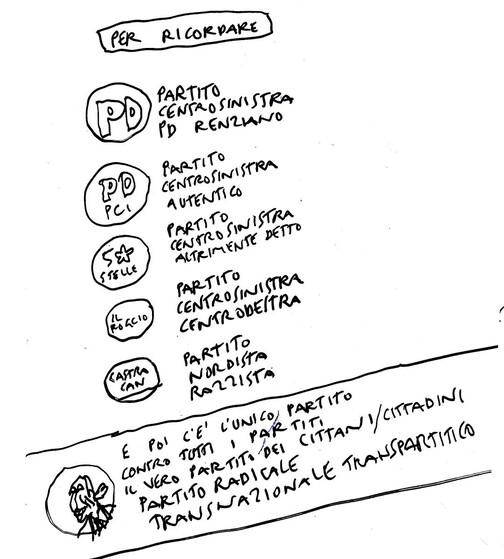 PER RICORDARE
PD
PARTITO
CENTROSINISTRA
PD RENZIANO
PD
PCI
PARTITO
CENTROSINISTRA
AUTENTICO
5☆
STELLE
PARTITO
CENTROSINISTRA
ALTRIMENTE DETTO
IL
ROGGIO
PARTITO
CENTROSINISTRA
CENTRODESTRA
CASTRA
CAN
PARTITO
NORDISTA
RAZZISTA
E POI C'E' L'UNICO PARTITO
CONTRO TUTTI I PARTITI
IL VERO PARTITO DEI CITTANI/CITTADINI
PARTITO RADICALE
TRANSNAZIONALE TRANSPARTITICO